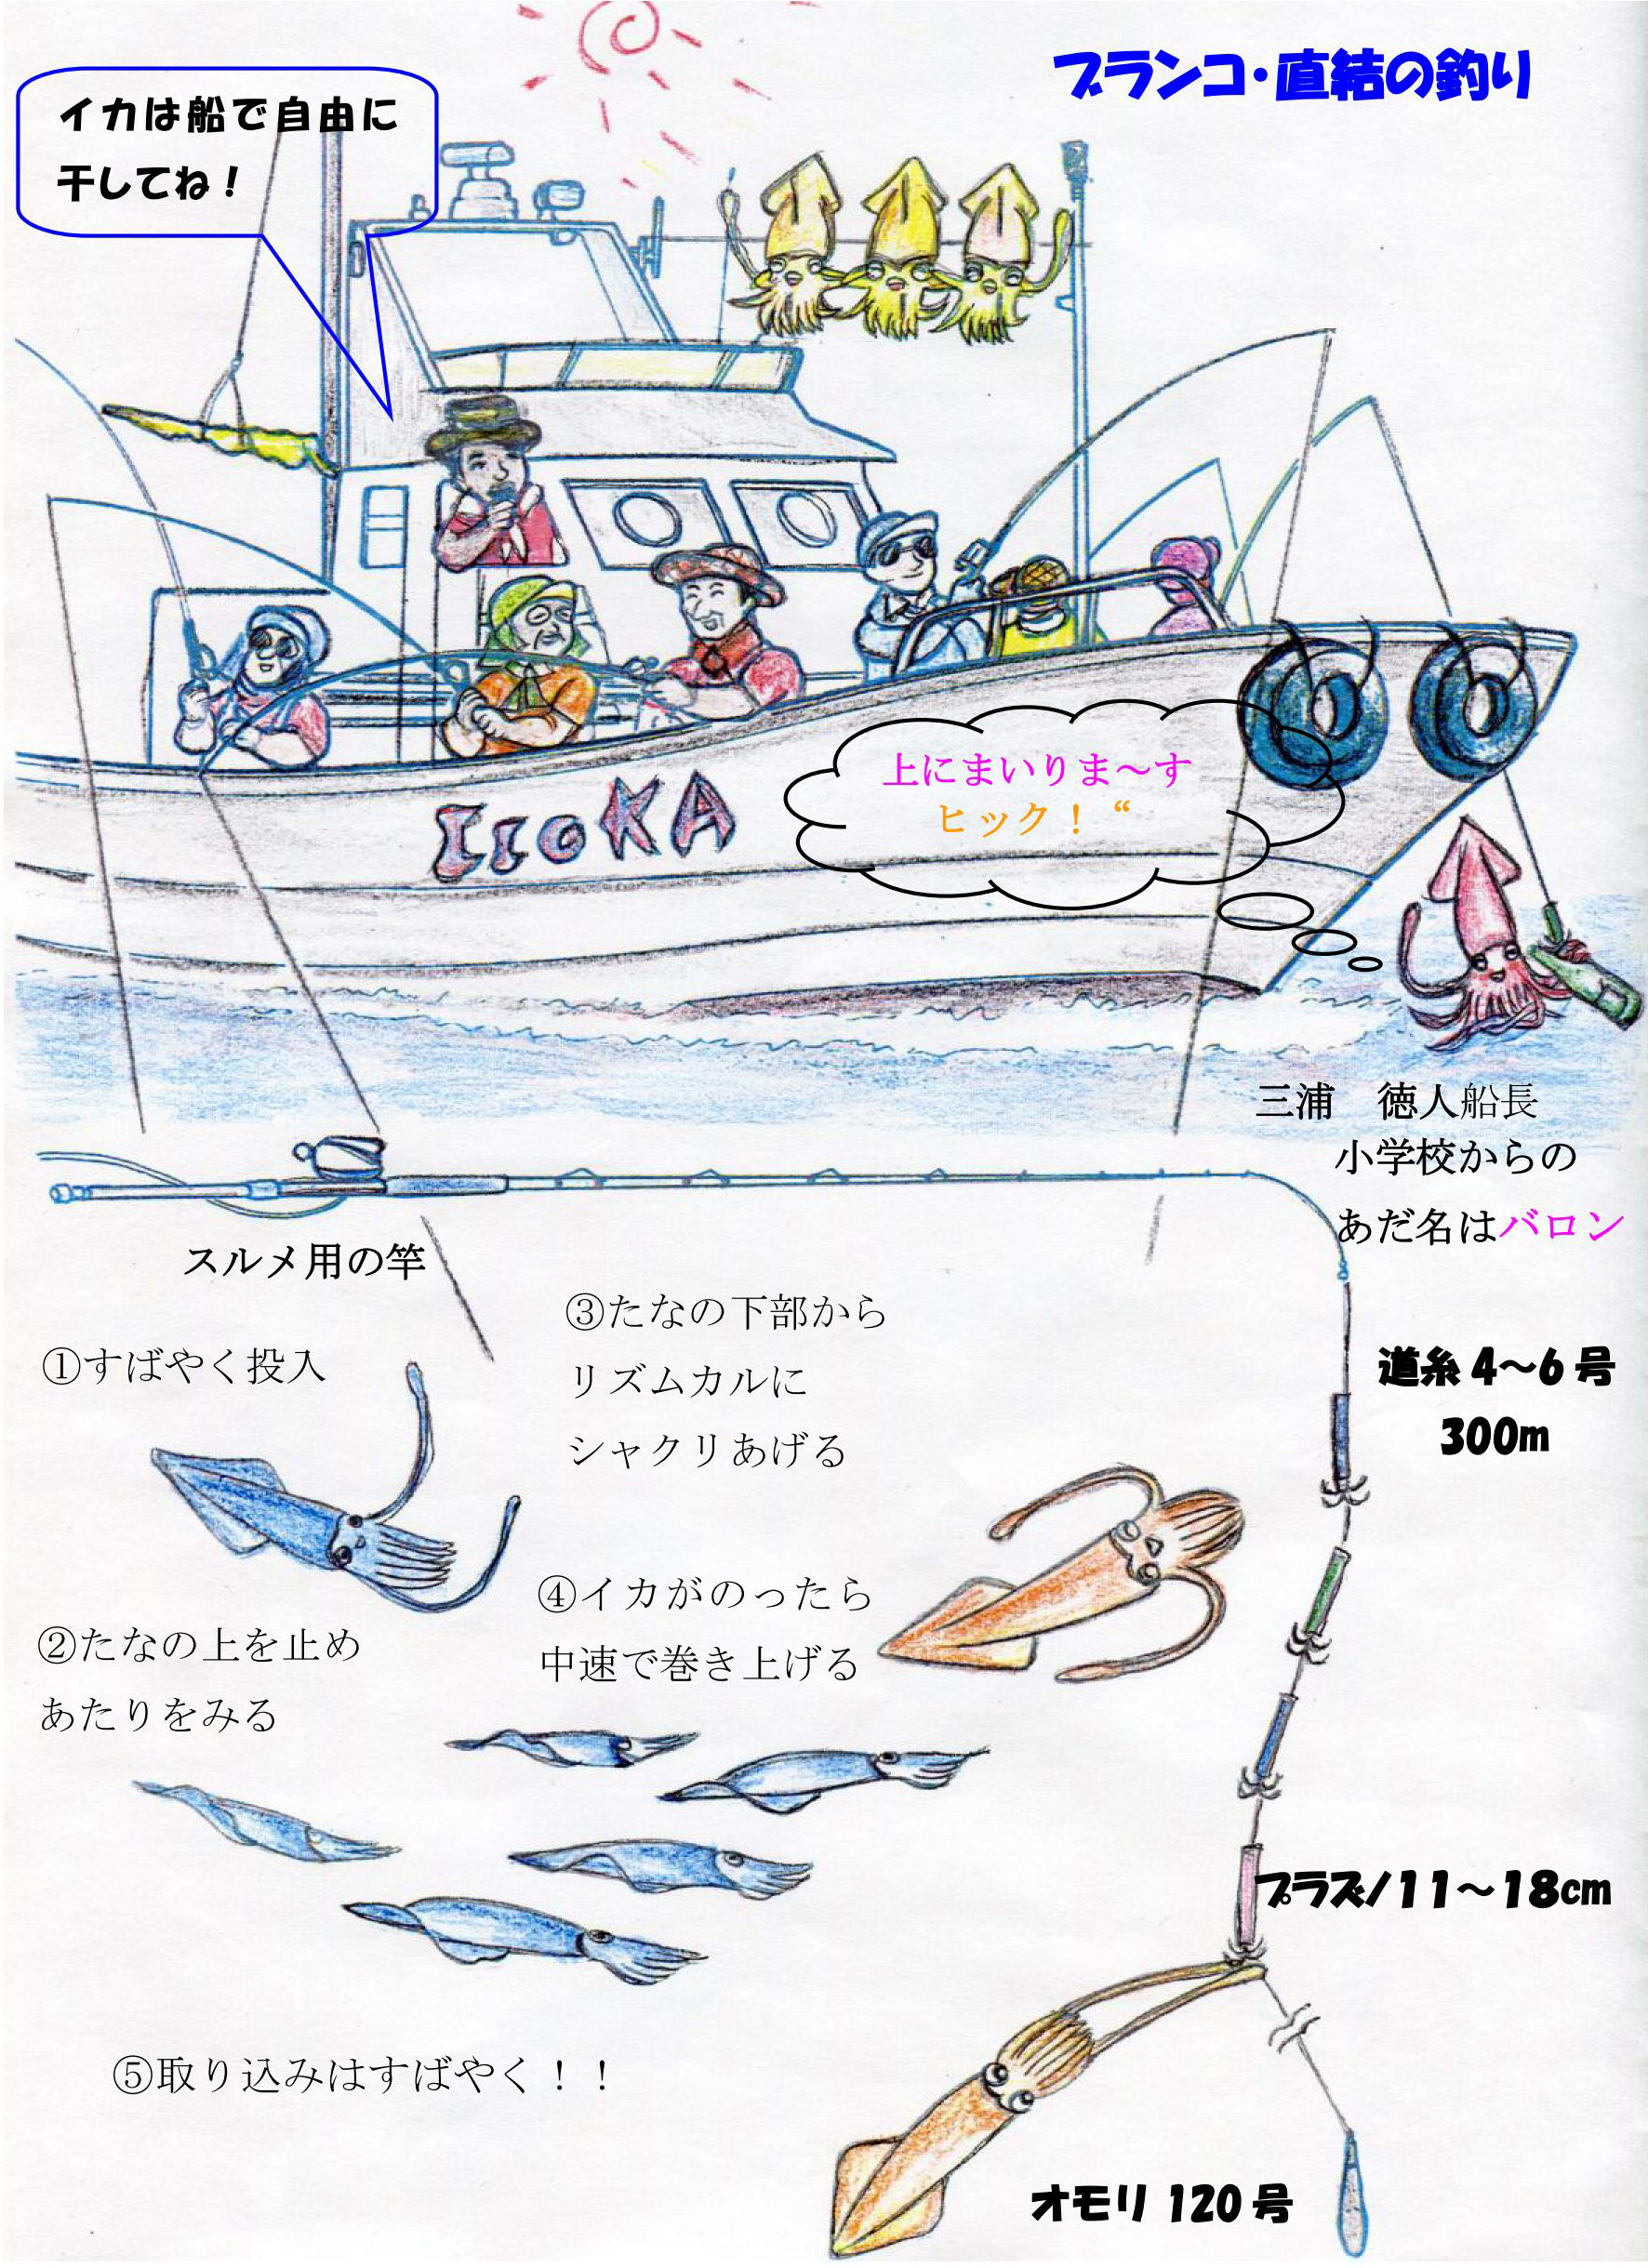 ブランコ・直結の釣り
イカは船で自由に
干してね！
IroKA
上にまいりま～す
ヒック！“
三浦　徳人船長
小学校からの
あだ名はバロン
スルメ用の竿
①すばやく投入
②たなの上を止め
あたりをみる
③たなの下部から
リズムカルに
シャクリあげる
④イカがのったら
中速で巻き上げる
⑤取り込みはすばやく！！
道糸4～6号
300m
プラヅノ11～18cm
オモリ120号